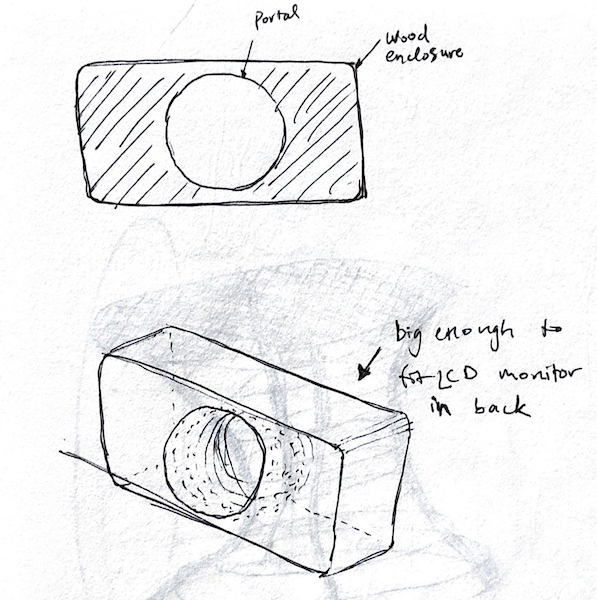 Portal
Wood
enclosure
big enough to
fit LCD monitor
in back